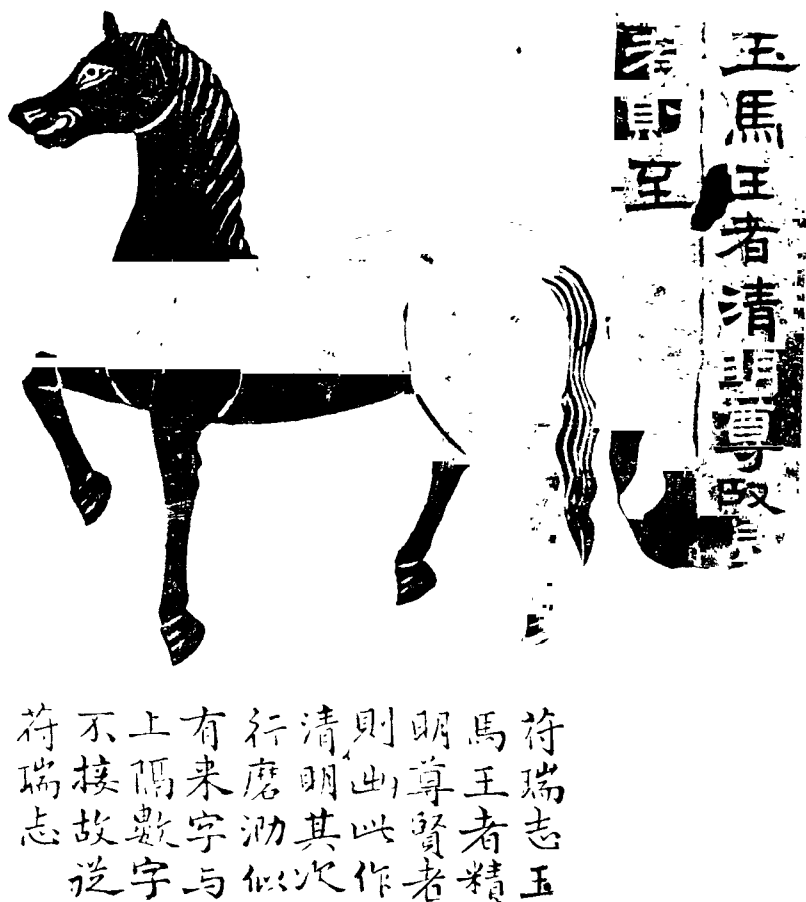 玉馬王者清明尊賢
者則至
苻瑞志玉
馬王者精
明尊賢者
則出此作
清明其次
行磨泐似
有来字与
上隔數字
不接故從
苻瑞志